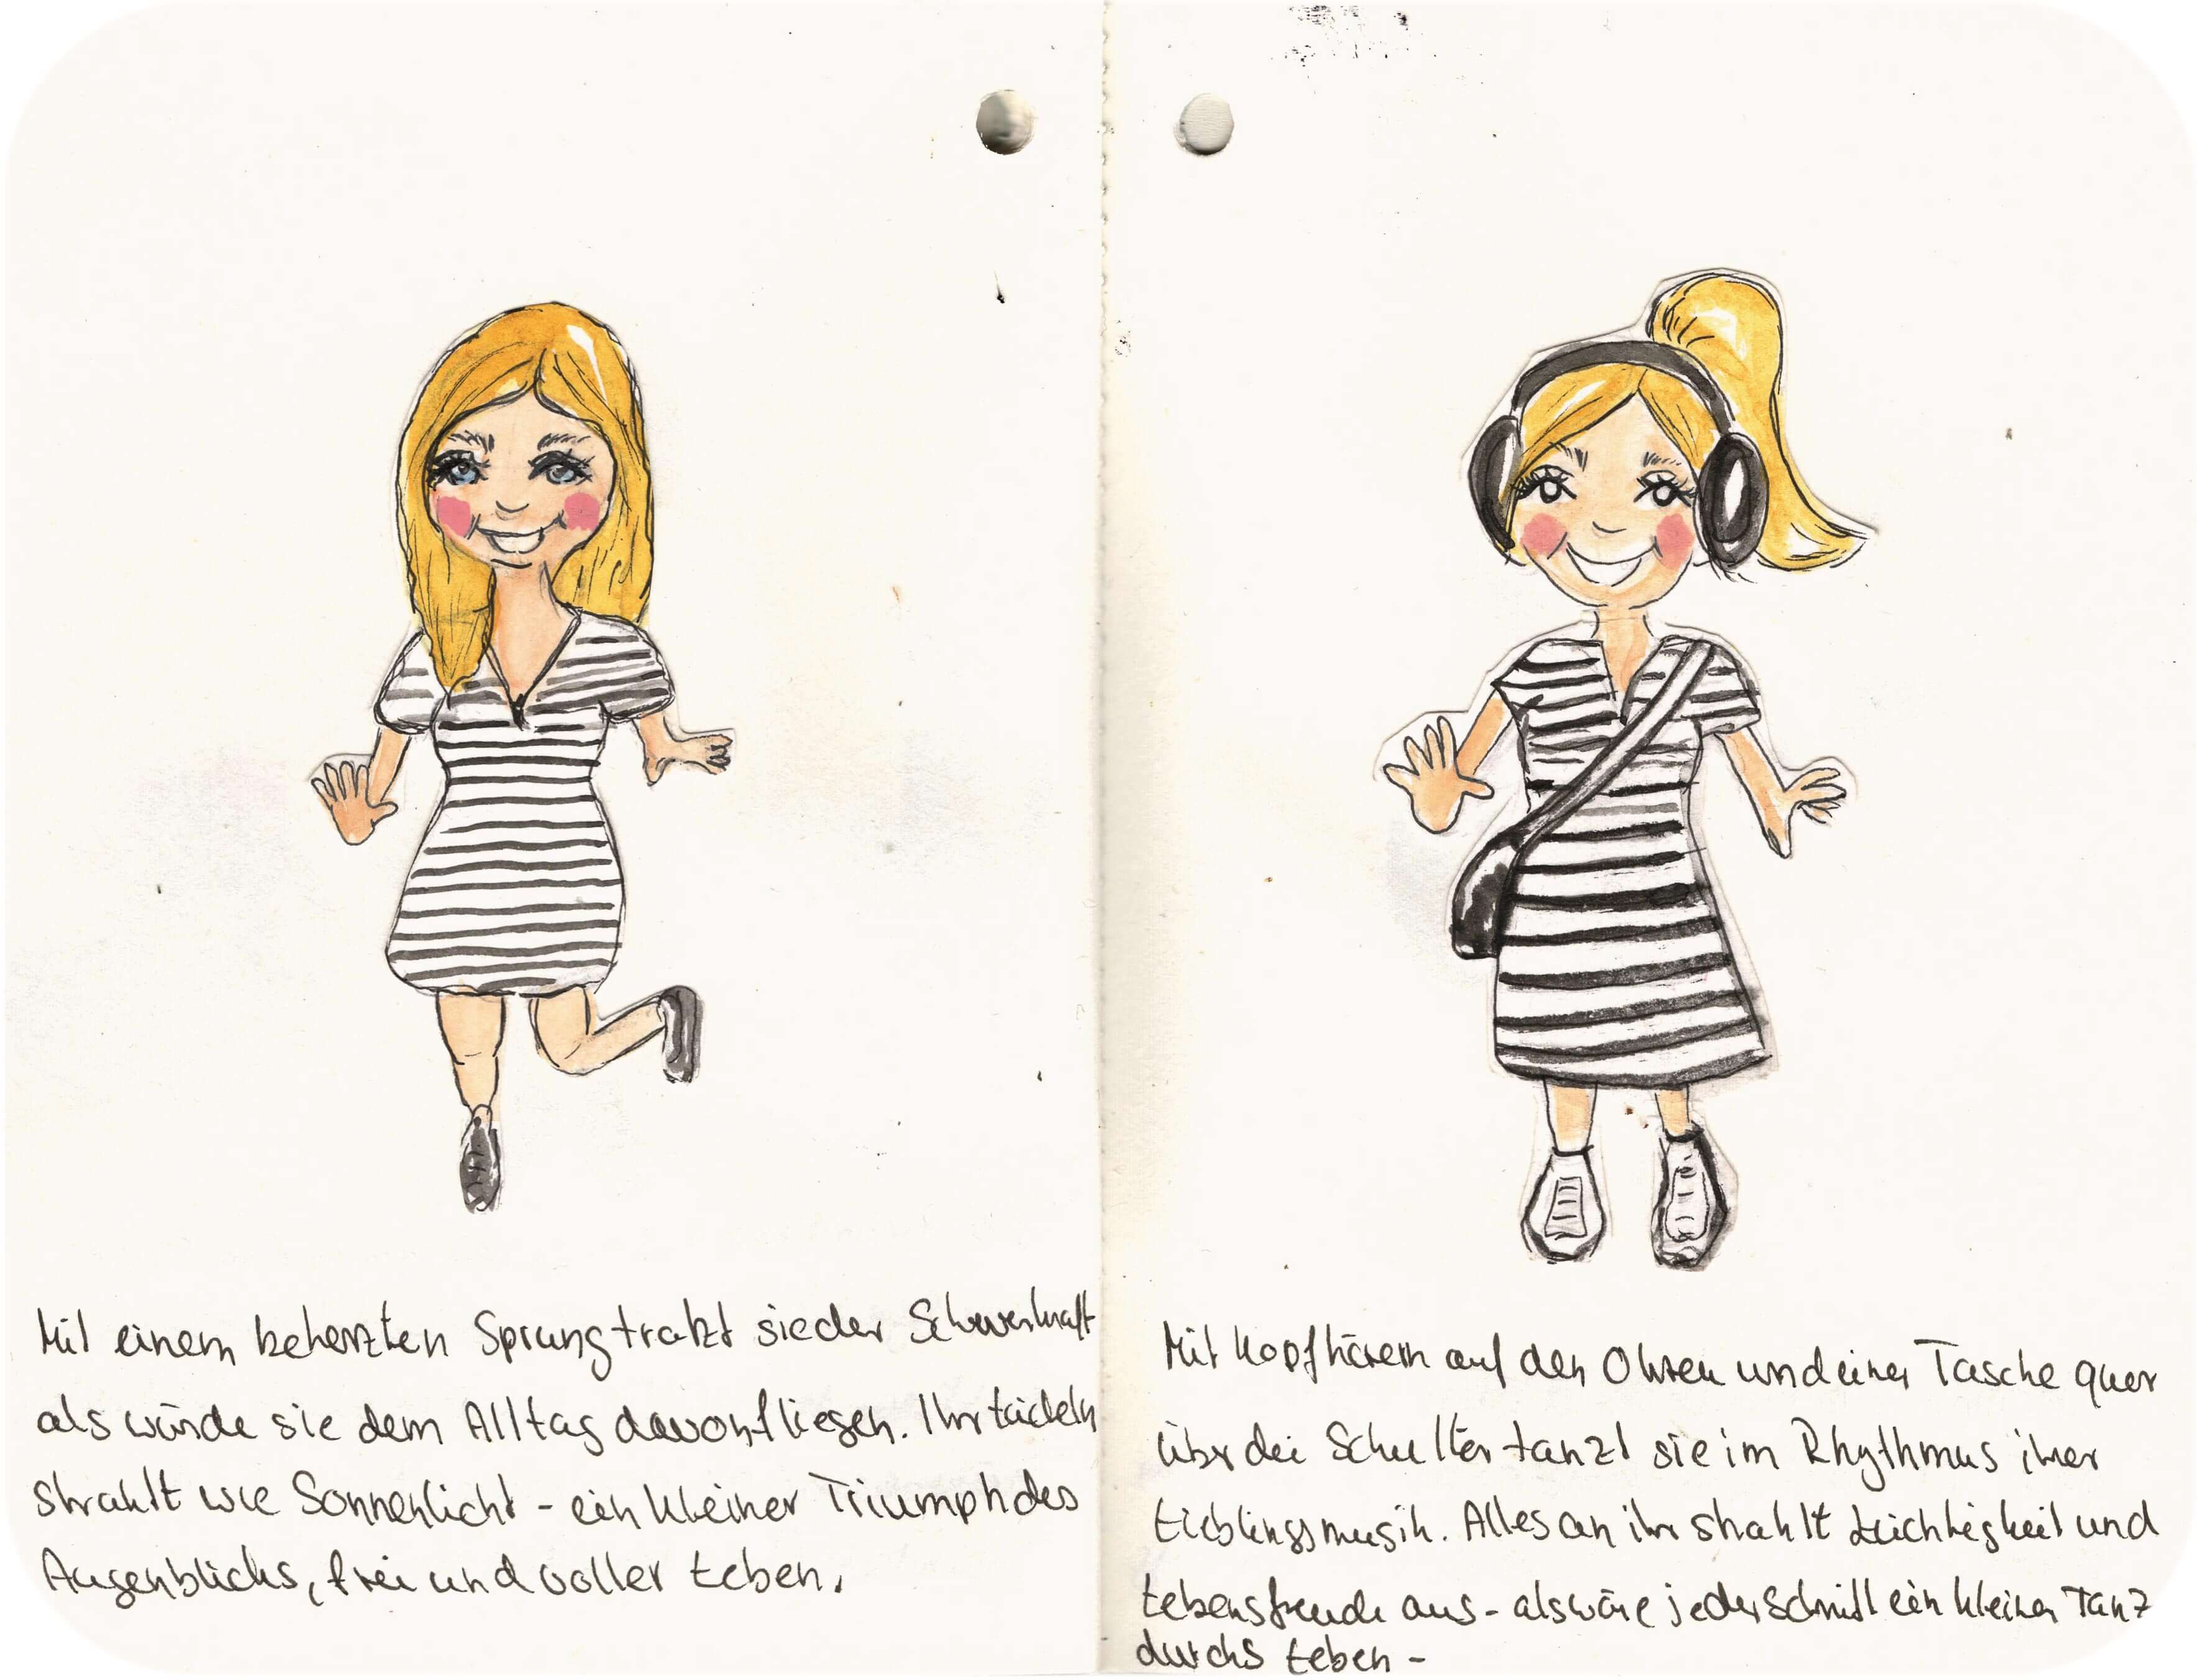 Mit einem beherzten Sprung trotzt sie der Schwerkraft
als würde sie dem Alltag davonfliegen. Ihr Lächeln
strahlt wie Sonnenlicht - ein kleiner Triumph des
Augenblicks, frei und voller Leben.
Mit Kopfhörern auf den Ohren und einer Tasche quer
über dei Schulter tanzt sie im Rhythmus ihrer
Lieblingsmusik. Alles an ihr strahlt Leichtigkeit und
Lebensfreude aus - als wäre jeder Schritt ein kleiner Tanz
durchs Leben -